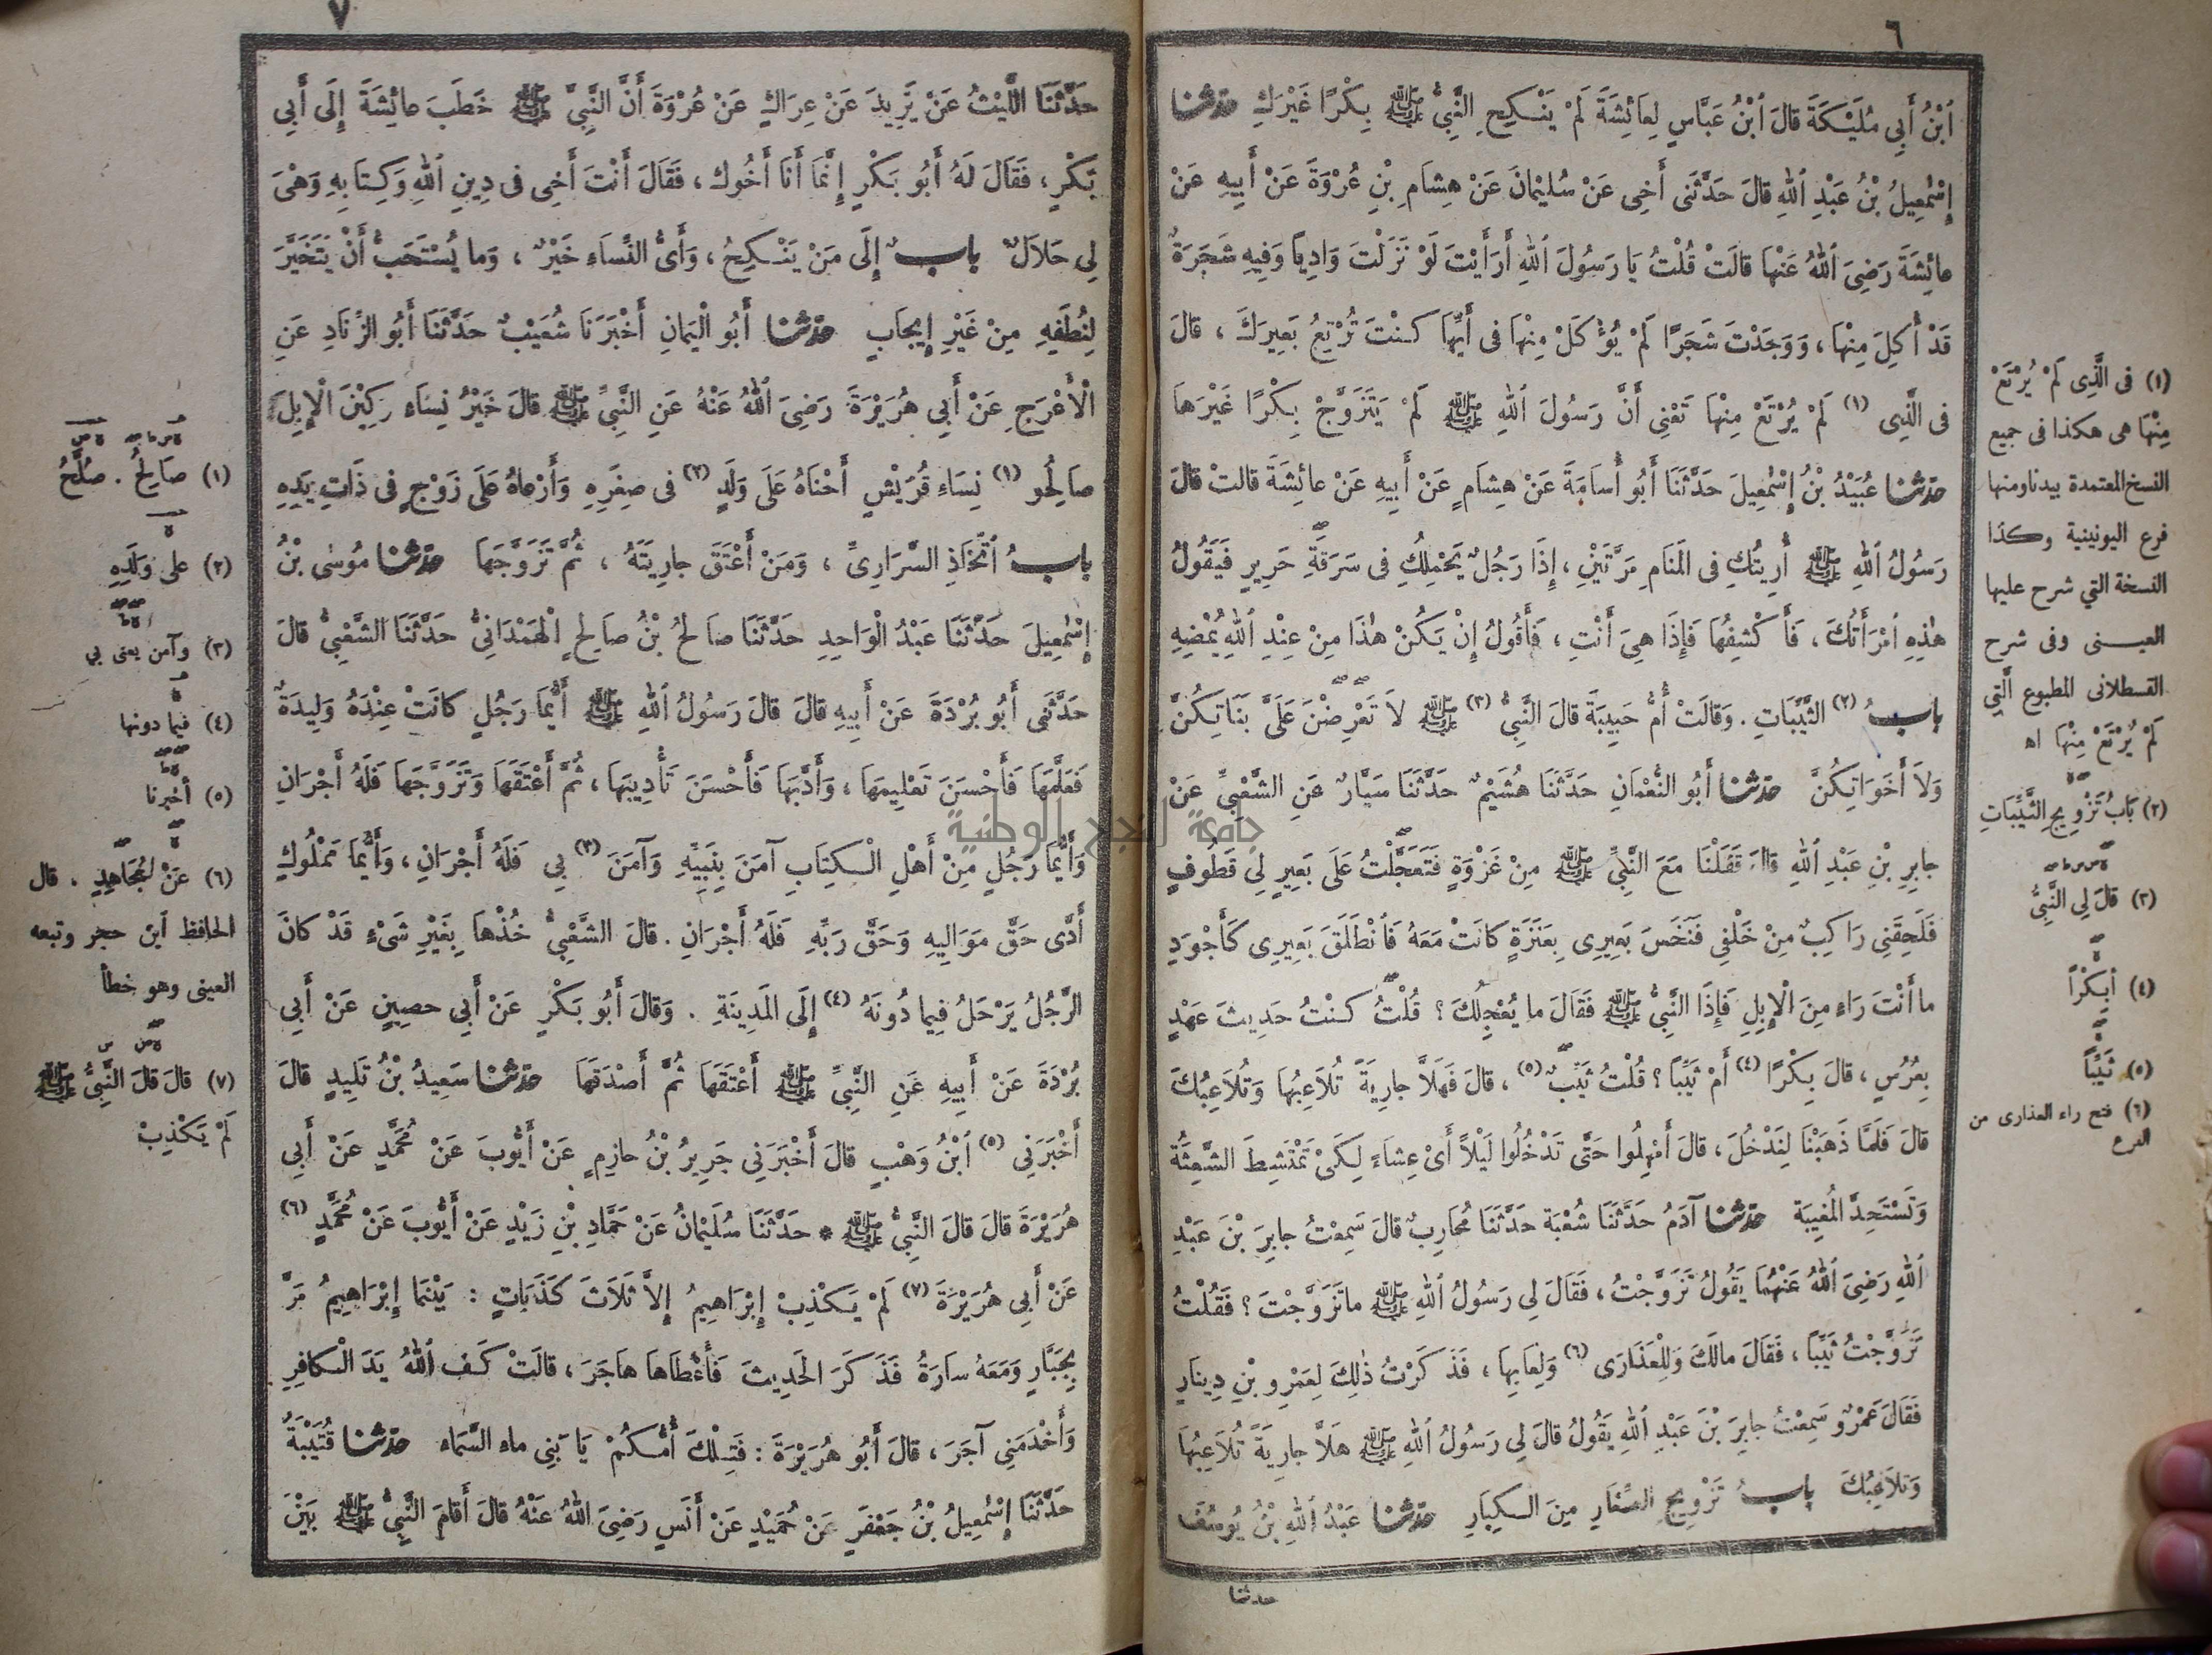 ٦
ٱبْنُ أَبِي مُلَيْكَةَ قالَ ٱبْنُ عَبَّاسٍ لِعَائِشَةَ لَمْ يَنْكِحِ النَّبِيُّ ﷺ بِكْرًا غَيْرَكِ حَدَّثَنَا
إِسْمٰعِيلُ بْنُ عَبْدِ ٱللهِ قالَ حَدَّثَنِي أَخِي عَنْ سُلَيْمانَ عَنْ هِشَامِ بْنِ عُرْوَةَ عَنْ أَبِيهِ عَنْ
عائِشَةَ رَضِيَ ٱللهُ عَنْهَا قالَتْ قُلْتُ يَا رَسُولَ ٱللهِ أَرَأَيْتَ لَوْ نَزَلْتَ وَادِيًا وَفِيهِ شَجَرَةٌ
قَدْ أُكِلَ مِنْهَا ، وَوَجَدْتَ شَجَرًا لَمْ يُؤْكَلْ مِنْهَا فى أَيِّهَا كُنْتَ تُرْتِعُ بَعِيرَكَ ، قالَ
فى الَّذِى (١) لَمْ يُرْتَعْ مِنْهَا تَعْنِى أَنَّ رَسُولَ ٱللهِ ﷺ لَمْ يَتَزَوَّجْ بِكْرًا غَيْرَها
حَدَّثَنَا عُبَيْدُ بْنُ إِسْمٰعِيلَ حَدَّثَنَا أَبُو أُسَامَةَ عَنْ هِشَامٍ عَنْ أَبِيهِ عَنْ عائِشَةَ قالت قالَ
رَسُولُ ٱللهِ ﷺ أُرِيتُكِ فى الْمَنَامِ مَرَّتَيْنِ ، إِذَا رَجُلٌ يَحْمِلُكِ فى سَرَقَةِ حَرِيرٍ فَيَقُولُ
هٰذِهِ ٱمْرَأَتُكَ ، فَأَكْشِفُهَا فَإِذَا هِيَ أَنْتِ ، فَأَقُولُ إِنْ يَكُنْ هٰذَا مِنْ عِنْدِ ٱللهِ يُمْضِهِ
بابُ (٢) الثَّيِّبَاتِ . وَقالَتْ أُمُّ حَبِيبَةَ قالَ النَّبِيُّ (٣) ﷺ لاَ تَعْرِضْنَ عَلَيَّ بَنَاتِكُنَّ
وَلاَ أَخَوَاتِكُنَّ حَدَّثَنَا أَبُو النُّعْمَانِ حَدَّثَنَا هُشَيْمٌ حَدَّثَنَا سَيَّارٌ عَنِ الشَّعْبِيِّ عَنْ
جابِرِ بْنِ عَبْدِ ٱللهِ قالَ قَفَلْنَا مَعَ النَّبِيِّ ﷺ مِنْ غَزْوَةٍ فَتَعَجَّلْتُ عَلَى بَعِيرٍ لِي قَطُوفٍ
فَلَحِقَنِي رَاكِبٌ مِنْ خَلْفِي فَنَخَسَ بَعِيرِى بِعَنَزَةٍ كانَتْ مَعَهُ فَٱنْطَلَقَ بَعِيرِى كَأَجْوَدِ
ما أَنْتَ رَاءٍ مِنَ الْإِبِلِ فَإِذَا النَّبِيُّ ﷺ فَقَالَ ما يُعْجِلُكَ ؟ قُلْتُ كُنْتُ حَدِيثَ عَهْدٍ
بِعُرُسٍ ، قالَ بِكْرًا (٤) أَمْ ثَيِّبًا ؟ قُلْتُ ثَيِّبٌ (٥) ، قالَ فَهَلاَّ جارِيَةً تُلاَعِبُهَا وَتُلاَعِبُكَ
قالَ فَلَمَّا ذَهَبْنَا لِنَدْخُلَ ، قالَ أَمْهِلُوا حَتَّى تَدْخُلُوا لَيْلاً أَىْ عِشَاءً لِكَىْ تَمْتَشِطَ الشَّعِثَةُ
وَتَسْتَحِدَّ الْمُغِيبَة حَدَّثَنَا آدَمُ حَدَّثَنَا شُعْبَة حَدَّثَنَا مُحارِبٌ قالَ سَمِعْتُ جابِرَ بْنَ عَبْدِ
ٱللهِ رَضِيَ ٱللهُ عَنْهُمَا يَقُولُ تَزَوَّجْتُ ، فَقَالَ لِي رَسُولُ ٱللهِ ﷺ ما تَزَوَّجْتَ ؟ فَقُلْتُ
تَزَوَّجْتُ ثَيِّبًا ، فَقَالَ مالَكَ وَلِلْعَذَارَى (٦) وَلِعَابِهَا ، فَذَكَرْتُ ذٰلِكَ لِعَمْرِو بْنِ دِينَارٍ
فَقَالَ عَمْرٌو سَمِعْتُ جابِرَ بْنَ عَبْدِ ٱللهِ يَقُولُ قالَ لِي رَسُولُ ٱللهِ ﷺ هَلاَّ جارِيَةً تُلاَعِبُهَا
وَتُلاَعِبُكَ بابُ تَزْوِيجِ الصِّغَارِ مِنَ الْكِبَارِ حَدَّثَنَا عَبْدُ ٱللهِ بْنُ يُوسُفَ
حدثنا
(١) فى الَّذِى لَمْ يُرْتَعْ
مِنْهَا هى هكذا فى جميع
النسخ المعتمدة بيدنا ومنها
فرع اليونينية وكذا
النسخة التي شرح عليها
العينى وفى شرح
القسطلانى المطبوع الَّتِي
لَمْ يُرْتَعْ مِنْهَا اه
(٢) بَابُ تَزْوِيجِ الثَّيِّبَاتِ
(٣) قالَ لِي النَّبِيُّ
(٤) أَبِكْرًا
(٥) ثَيِّبًا
(٦) فتح راء العذارى من
الفرع
٧
حَدَّثَنَا اللَّيْثُ عَنْ يَزِيدَ عَنْ عِرَاكٍ عَنْ عُرْوَةَ أَنَّ النَّبِيَّ ﷺ خَطَبَ عائِشَةَ إِلَى أَبِي
بَكْرٍ ، فَقَالَ لَهُ أَبُو بَكْرٍ إِنَّمَا أَنَا أَخُوكَ ، فَقَالَ أَنْتَ أَخِى فى دِينِ ٱللهِ وَكِتَابِهِ وَهْىَ
لِي حَلاَلٌ بابٌ إِلَى مَنْ يَنْكِحُ ، وَأَىُّ النِّسَاءِ خَيْرٌ ، وَما يُسْتَحَبُّ أَنْ يَتَخَيَّرَ
لِنُطَفِهِ مِنْ غَيْرِ إِيجَابٍ حَدَّثَنَا أَبُو الْيَمَانِ أَخْبَرَنَا شُعَيْبٌ حَدَّثَنَا أَبُو الزِّنَادِ عَنِ
الْأَعْرَجِ عَنْ أَبِي هُرَيْرَةَ رَضِيَ ٱللهُ عَنْهُ عَنِ النَّبِيِّ ﷺ قالَ خَيْرُ نِسَاءٍ رَكِبْنَ الْإِبِلَ
صالِحُو (١) نِسَاءِ قُرَيْشٍ أَحْنَاهُ عَلَى وَلَدٍ (٢) فى صِغَرِهِ وَأَرْعاهُ عَلَى زَوْجٍ فى ذَاتِ يَدِهِ
بابُ ٱتِّخَاذِ السَّرَارِىِّ ، وَمَنْ أَعْتَقَ جارِيَتَهُ ، ثُمَّ تَزَوَّجَهَا حَدَّثَنَا مُوسٰى بْنُ
إِسْمٰعِيلَ حَدَّثَنَا عَبْدُ الْوَاحِدِ حَدَّثَنَا صَالِحُ بْنُ صَالِحٍ الْهَمْدَانِيُّ حَدَّثَنَا الشَّعْبِيُّ قالَ
حَدَّثَنِي أَبُو بُرْدَةَ عَنْ أَبِيهِ قالَ قالَ رَسُولُ ٱللهِ ﷺ أَيُّمَا رَجُلٍ كانَتْ عِنْدَهُ وَلِيدَةٌ
فَعَلَّمَهَا فَأَحْسَنَ تَعْلِيمَهَا ، وَأَدَّبَهَا فَأَحْسَنَ تَأْدِيبَهَا ، ثُمَّ أَعْتَقَهَا وَتَزَوَّجَهَا فَلَهُ أَجْرَانِ
وَأَيُّمَا رَجُلٍ مِنْ أَهْلِ الْكِتَابِ آمَنَ بِنَبِيِّهِ وَآمَنَ (٣) بِي فَلَهُ أَجْرَانِ ، وَأَيُّمَا مَمْلُوكٍ
أَدَّى حَقَّ مَوَالِيهِ وَحَقَّ رَبِّهِ فَلَهُ أَجْرَانِ . قالَ الشَّعْبِيُّ خُذْهَا بِغَيْرِ شَىْءٍ قَدْ كانَ
الرَّجُلُ يَرْحَلُ فِيما دُونَهُ (٤) إِلَى الْمَدِينَةِ . وَقالَ أَبُو بَكْرٍ عَنْ أَبِي حصِينٍ عَنْ أَبِي
بُرْدَةَ عَنْ أَبِيهِ عَنِ النَّبِيِّ ﷺ أَعْتَقَهَا ثُمَّ أَصْدَقَهَا حَدَّثَنَا سَعِيدُ بْنُ تَلِيدٍ قالَ
أَخْبَرَنِي (٥) ٱبْنُ وَهْبٍ قالَ أَخْبَرَنِي جَرِيرُ بْنُ حازِمٍ عَنْ أَيُّوبَ عَنْ مُحَمَّدٍ عَنْ أَبِي
هُرَيْرَةَ قالَ قالَ النَّبِيُّ ﷺ * حَدَّثَنَا سُلَيْمانُ عَنْ حَمَّادِ بْنِ زَيْدٍ عَنْ أَيُّوبَ عَنْ مُحَمَّدٍ (٦)
عَنْ أَبِي هُرَيْرَةَ (٧) لَمْ يَكْذِبْ إِبْرَاهِيمُ إِلاَّ ثَلاَثَ كَذَبَاتٍ : بَيْنَمَا إِبْرَاهِيمُ مَرَّ
بِجَبَّارٍ وَمَعَهُ سارَةُ فَذَكَرَ الحَدِيثَ فَأَعْطَاها هاجَرَ ، قالَتْ كَفَّ ٱللهُ يَدَ الْكافِرِ
وَأَخْدَمَنِي آجَرَ ، قالَ أَبُو هُرَيْرَةَ : فَتِلْكَ أُمُّكُمْ يَا بَنِي ماءِ السَّمَاءِ حَدَّثَنَا قُتَيْبَةُ
حَدَّثَنَا إِسْمٰعِيلُ بْنُ جَعْفَرٍ عَنْ حُمَيْدٍ عَنْ أَنَسٍ رَضِيَ ٱللهُ عَنْهُ قالَ أَقامَ النَّبِيُّ ﷺ بَيْنَ
(١) صَالِحُ . صُلَّحُ
(٢) على وَلَدِهِ
(٣) وآمن يعنى بي
(٤) فيما دونها
(٥) أخبرنا
(٦) عَنْ مُجَاهِدٍ . قال
الحافظ ٱبن حجر وتبعه
العينى وهو خطأ
(٧) قالَ قالَ النَّبِيُّ ﷺ
لَمْ يَكْذِبْ
جامعة النجاح الوطنية